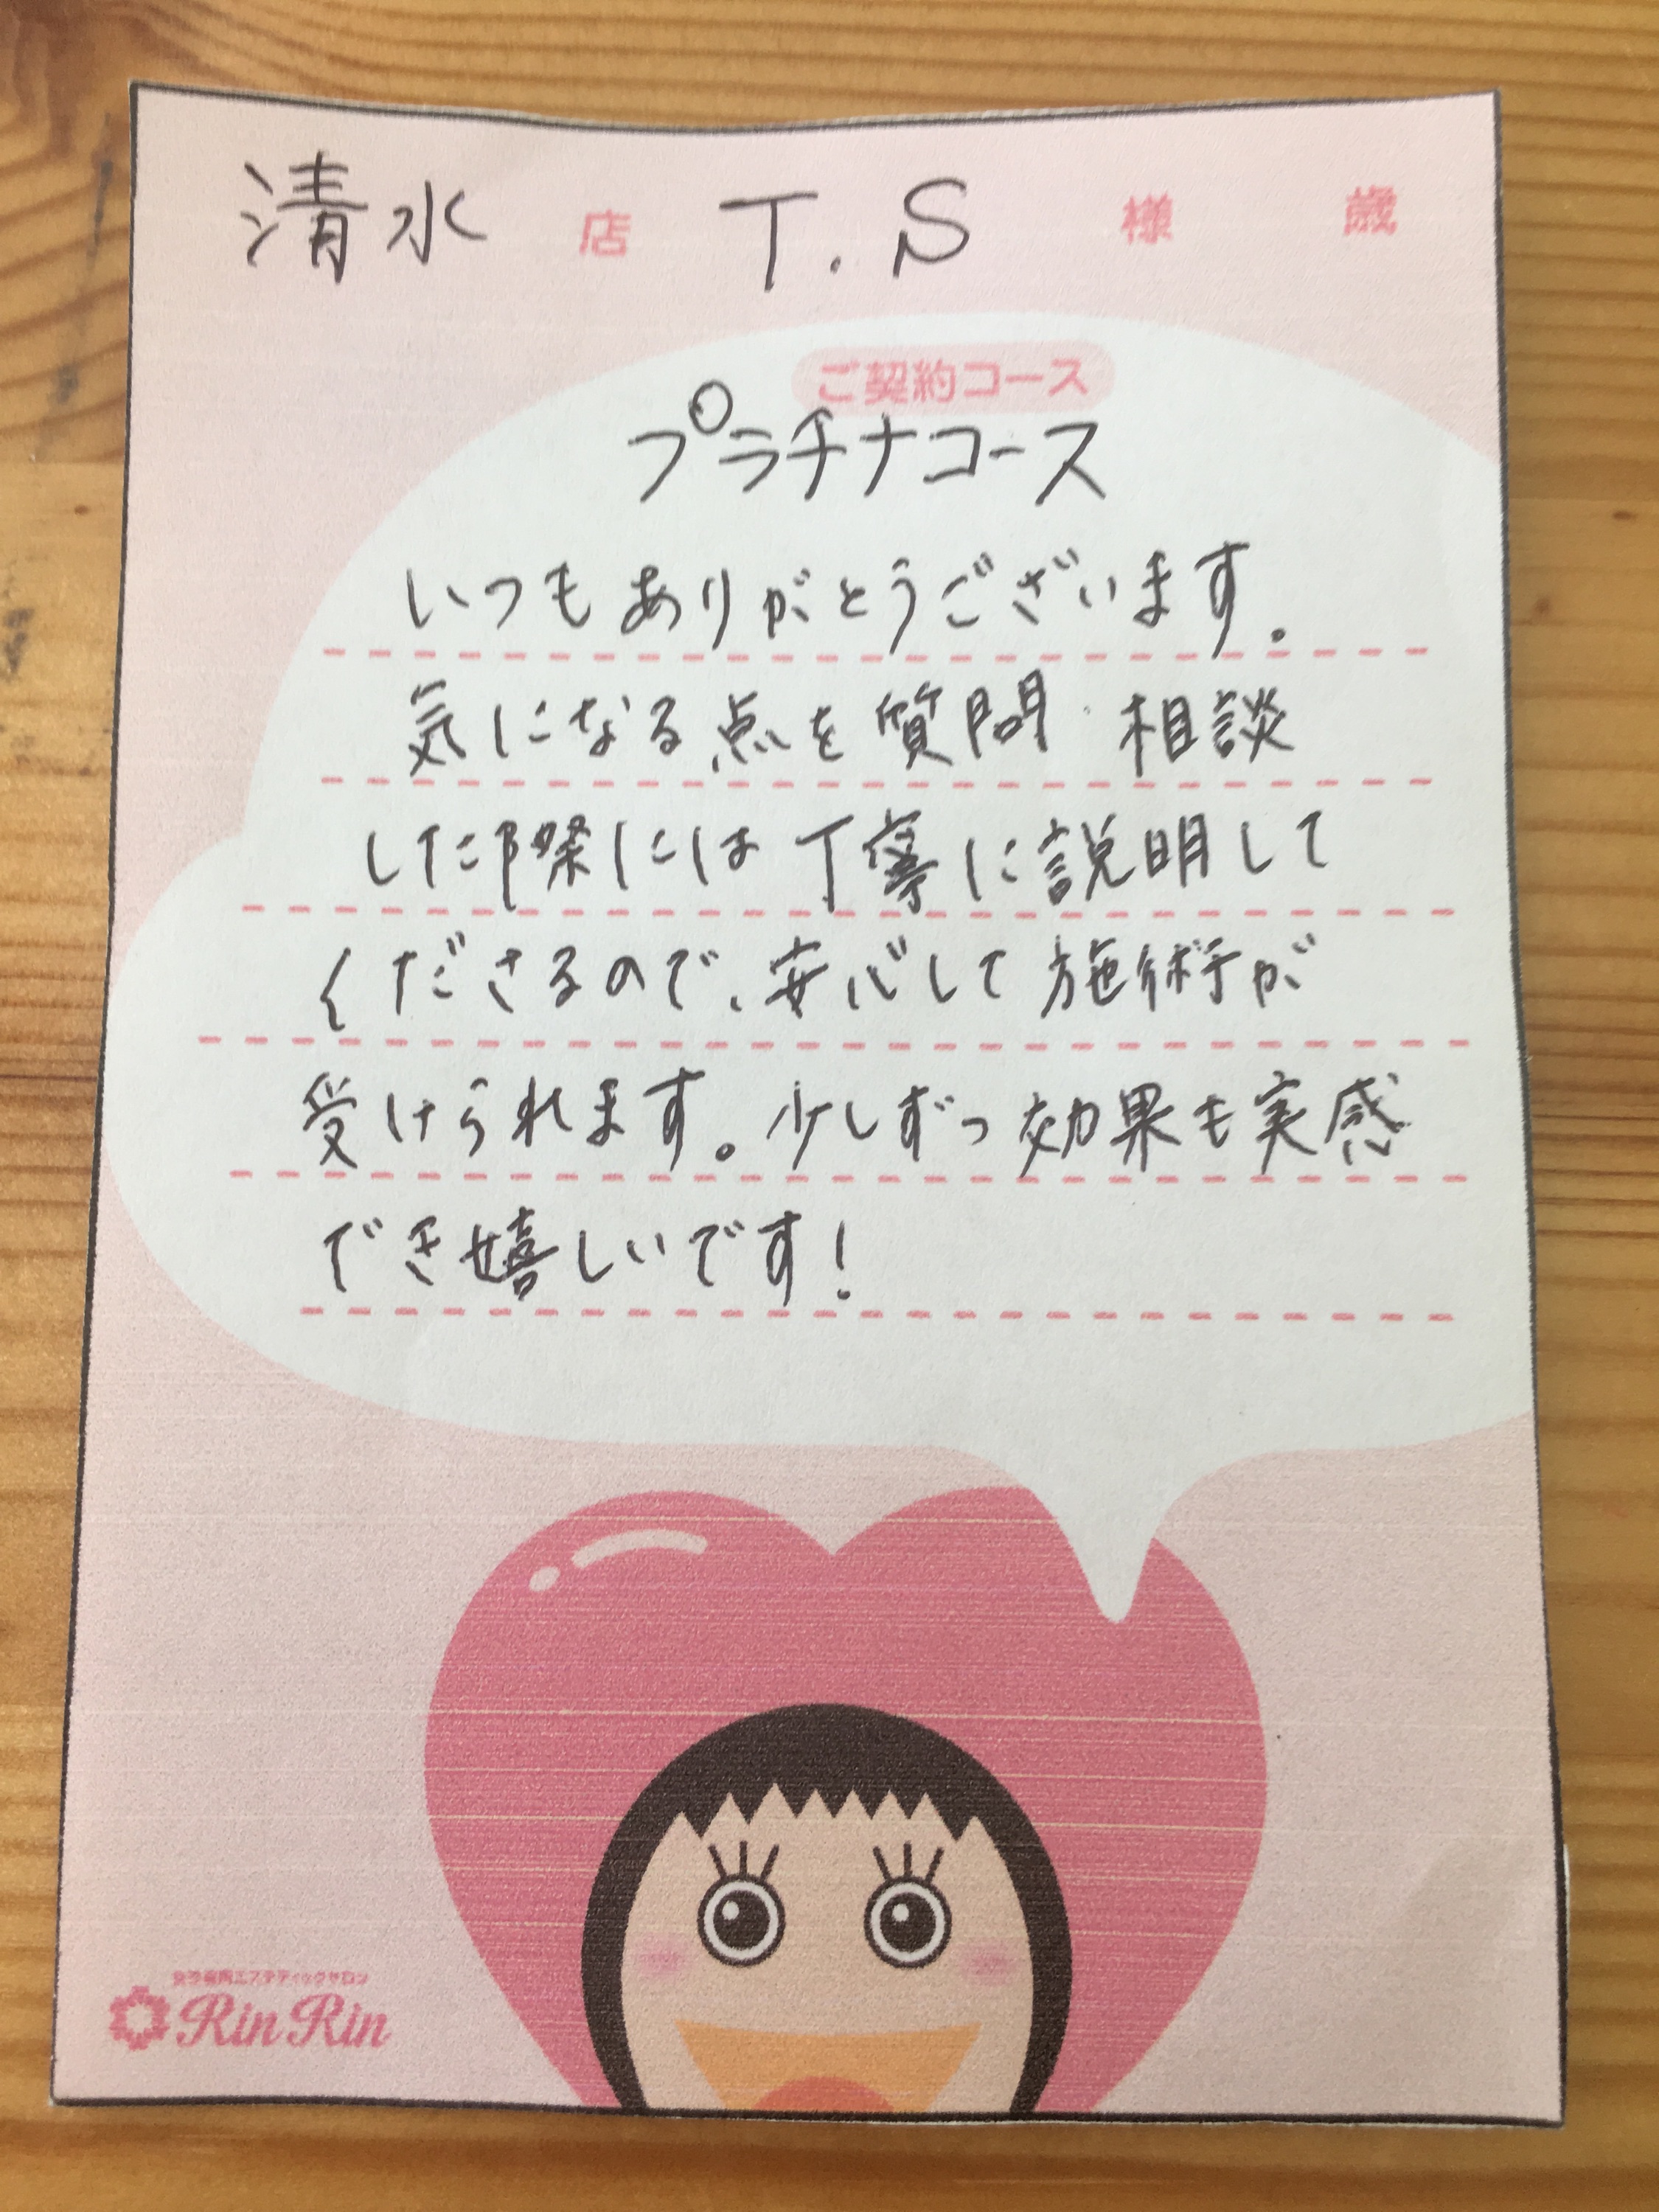 清水 店 T.S 様 歳
ご契約コース
プラチナコース
いつもありがとうございます。
気になる点を質問・相談
した際には丁寧に説明して
くださるので、安心して施術が
受けられます。少しずつ効果も実感
でき嬉しいです！
女性専用エステティックサロン
RinRin